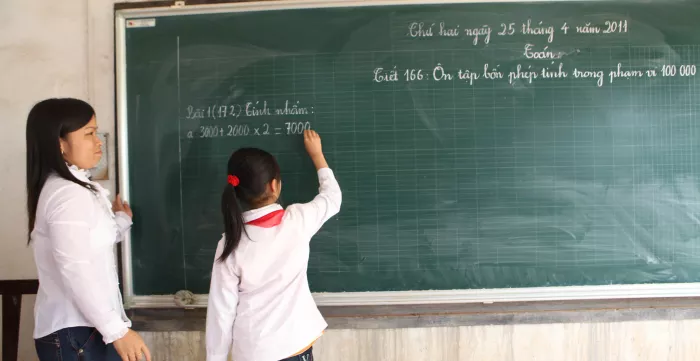 Thứ hai ngày 25 tháng 4 năm 2011
Toán
Tiết 166: Ôn tập bốn phép tính trong phạm vi 100 000
Bài 1 (172) Tính nhẩm:
a 3000 + 2000 x 2 = 7000